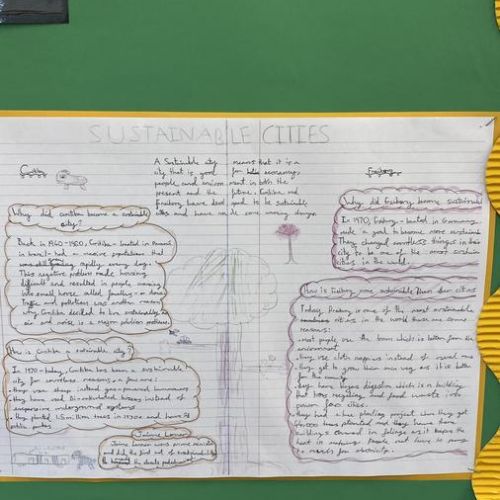 SUSTAINABLE CITIES
A Sustainable city means that it is a
city that is good for economy,
people and environment in both the
present and the future. Curitiba and
Freiburg have had goal to be sustainable
cities and have made some amazing changes.
Why did Curitiba become a sustainable
city?
Back in 1960-1980, Curitiba - located in Paraná
in brazil - had a massive populations that
was increasing rapidly every day.
This negative problem made housing
difficult and resulted in people moving
into small houses called favelas - or slums.
Traffic and pollution was another reason
why Curitiba decided to live sustainably as
air and noise is a major pollution problem.
How is Curitiba a sustainable city?
In 1970 - today, Curitiba has been a sustainable
city for countless reasons, a few are:
they use sheep instead gas-powered lawnmowers
they have used Bi-articulated buses instead of
expensive underground systems
they planted 1.5 million trees in 1970 and have
public parks
Jaime Lerner
Jaime Lerner
Why did Freiburg become sustainable
In 1970, Freiburg - located in Germany,
made a goal to become more sustainable.
They changed countless things in their
city to be one of the most sustainable
cities in the world.
How is Freiburg more sustainable than other cities
Today, Freiburg is one of the most sustainable
cities in the world these are some
reasons:
most people use the trams which is better from the
environment.
they use cloth nappies instead of normal ones
they got to grow their own veg as it is better
for the
they have biogas digestion which is a building
that has recycling and food waste to
power for cities.
they had a tree planting project when they got
trees planted and they have their
buildings covered in foliage as it keeps the
heat in reducing people not have to pay
so much for electricity.